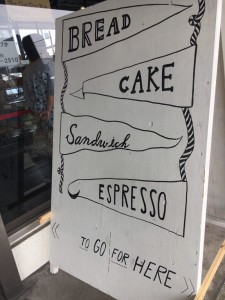 BREAD
CAKE
Sandwich
ESPRESSO
TO GO FOR HERE